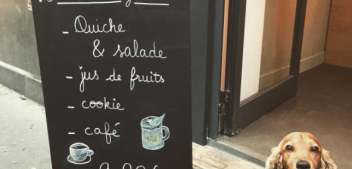 - Quiche
& salade
- jus de fruits
- cookie
- café